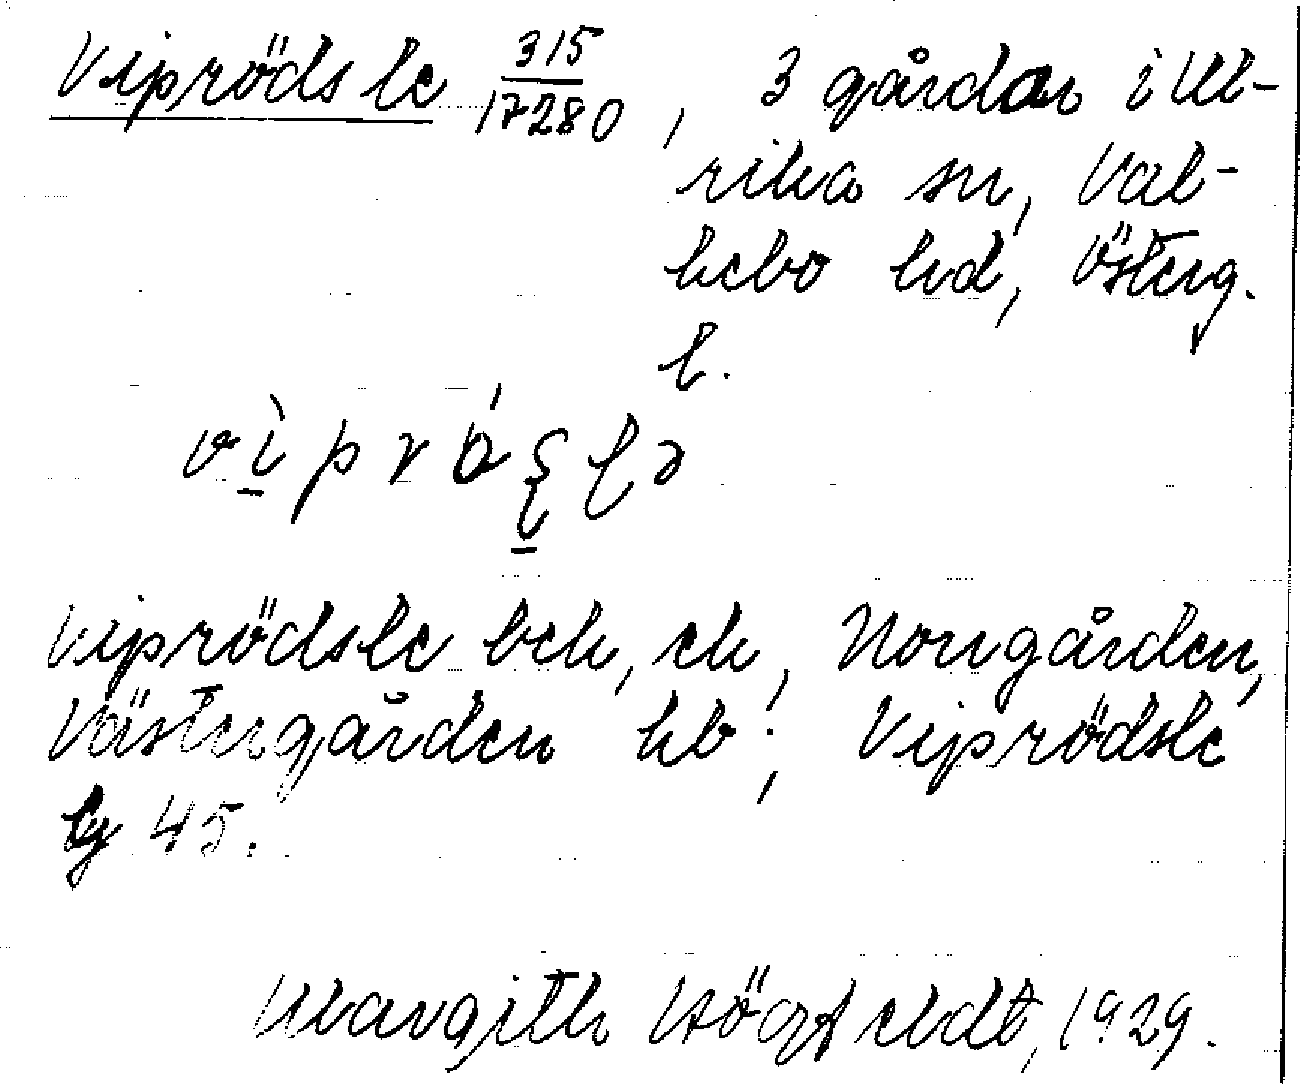 Viprödsle 315/17280, 3 gårdar i Ul-
rika sn, Val-
kebo hd, Österg.
l.
Viprödsle bck, ek, Norrgården,
Västergården kb; Viprödsle
by 45.
Margith Högfeldt, 1929.